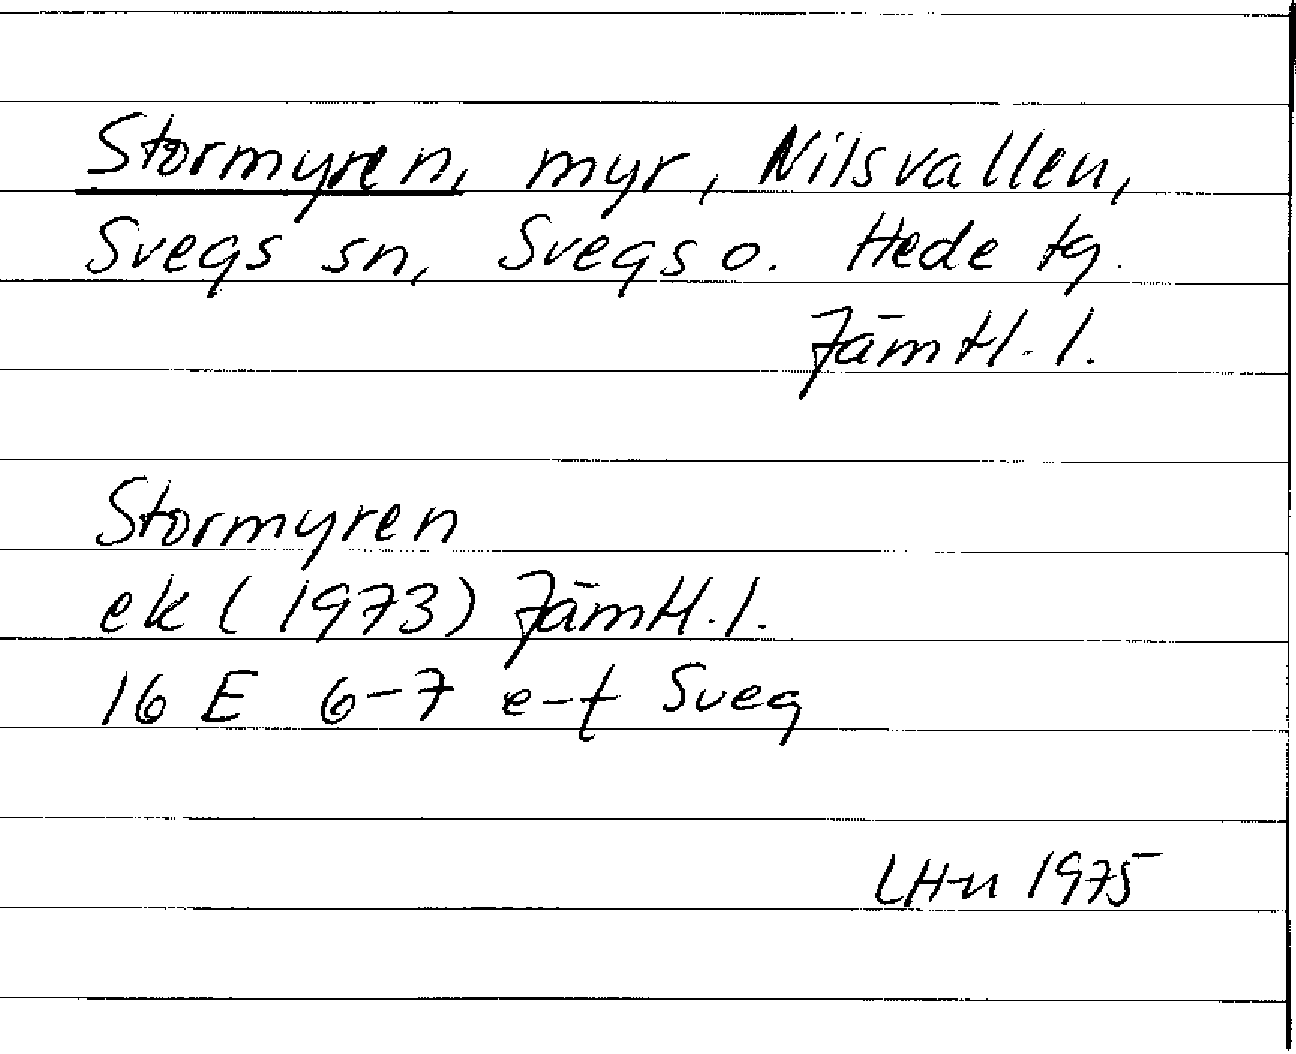 Stormyren, myr, Nilsvallen,
Svegs sn, Svegs o. Hede tg.
Jämtl. l.
Stormyren
ek (1973) Jämtl. l.
16 E 6-7 e-f Sveg
LH-n 1975